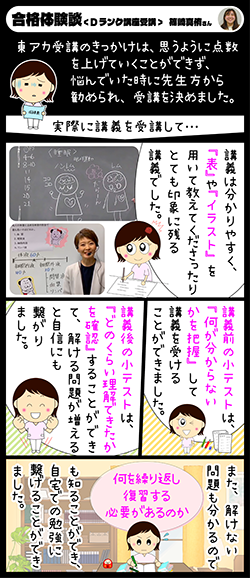 合格体験談
<Dランク講座受講>
篠崎真桐さん
東アカ受講のきっかけは、思うように点数
を上げていくことができず、
悩んでいた時に先生方から
勧められ、受講を決めました。
実際に講義を受講して…
講義は分かりやすく、
『表』や『イラスト』を
用いて教えてくださったり
とても印象に残る
講義でした。
講義前の小テストは、
『何が分からない
かを把握』して
講義を受ける
ことができました。
講義後の小テストは、
『どのくらい理解できたか
を確認』することができ
て、解ける問題が増える
と自信にも
繋がり
ました。
また、解けない
問題も分かるので
何を繰り返し
復習する
必要があるのか
も知ることができ、
自宅での勉強に
繋げることができ
ました。